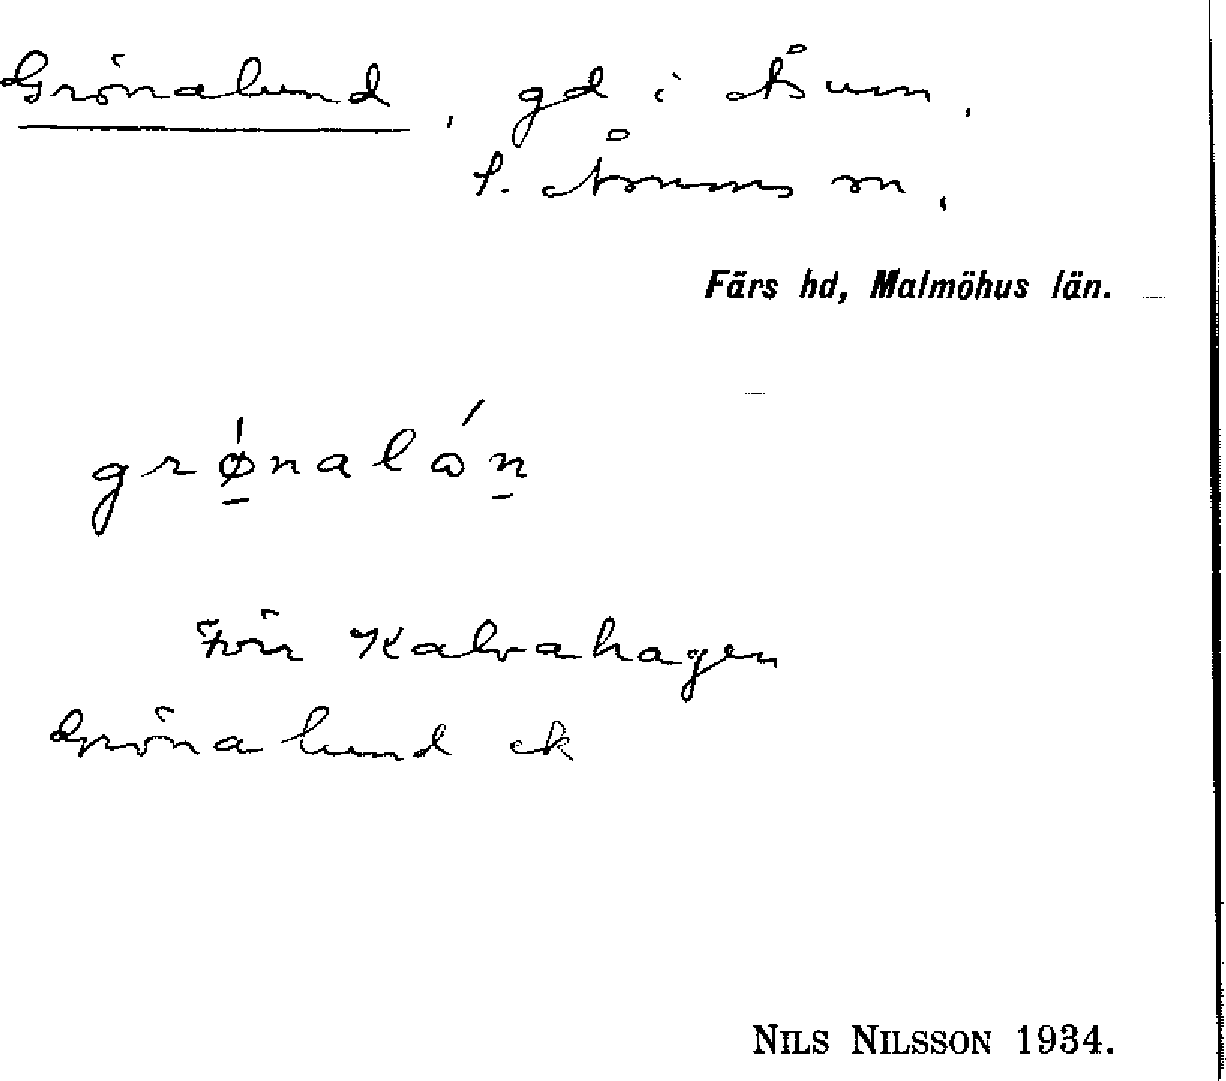 Grönalund, gd i Åsum,
S. Åsums sn,
Färs hd, Malmöhus län.
grǿ̱nalón̠
Förr Kalvahagen
Grönalund ek
NILS NILSSON 1934.